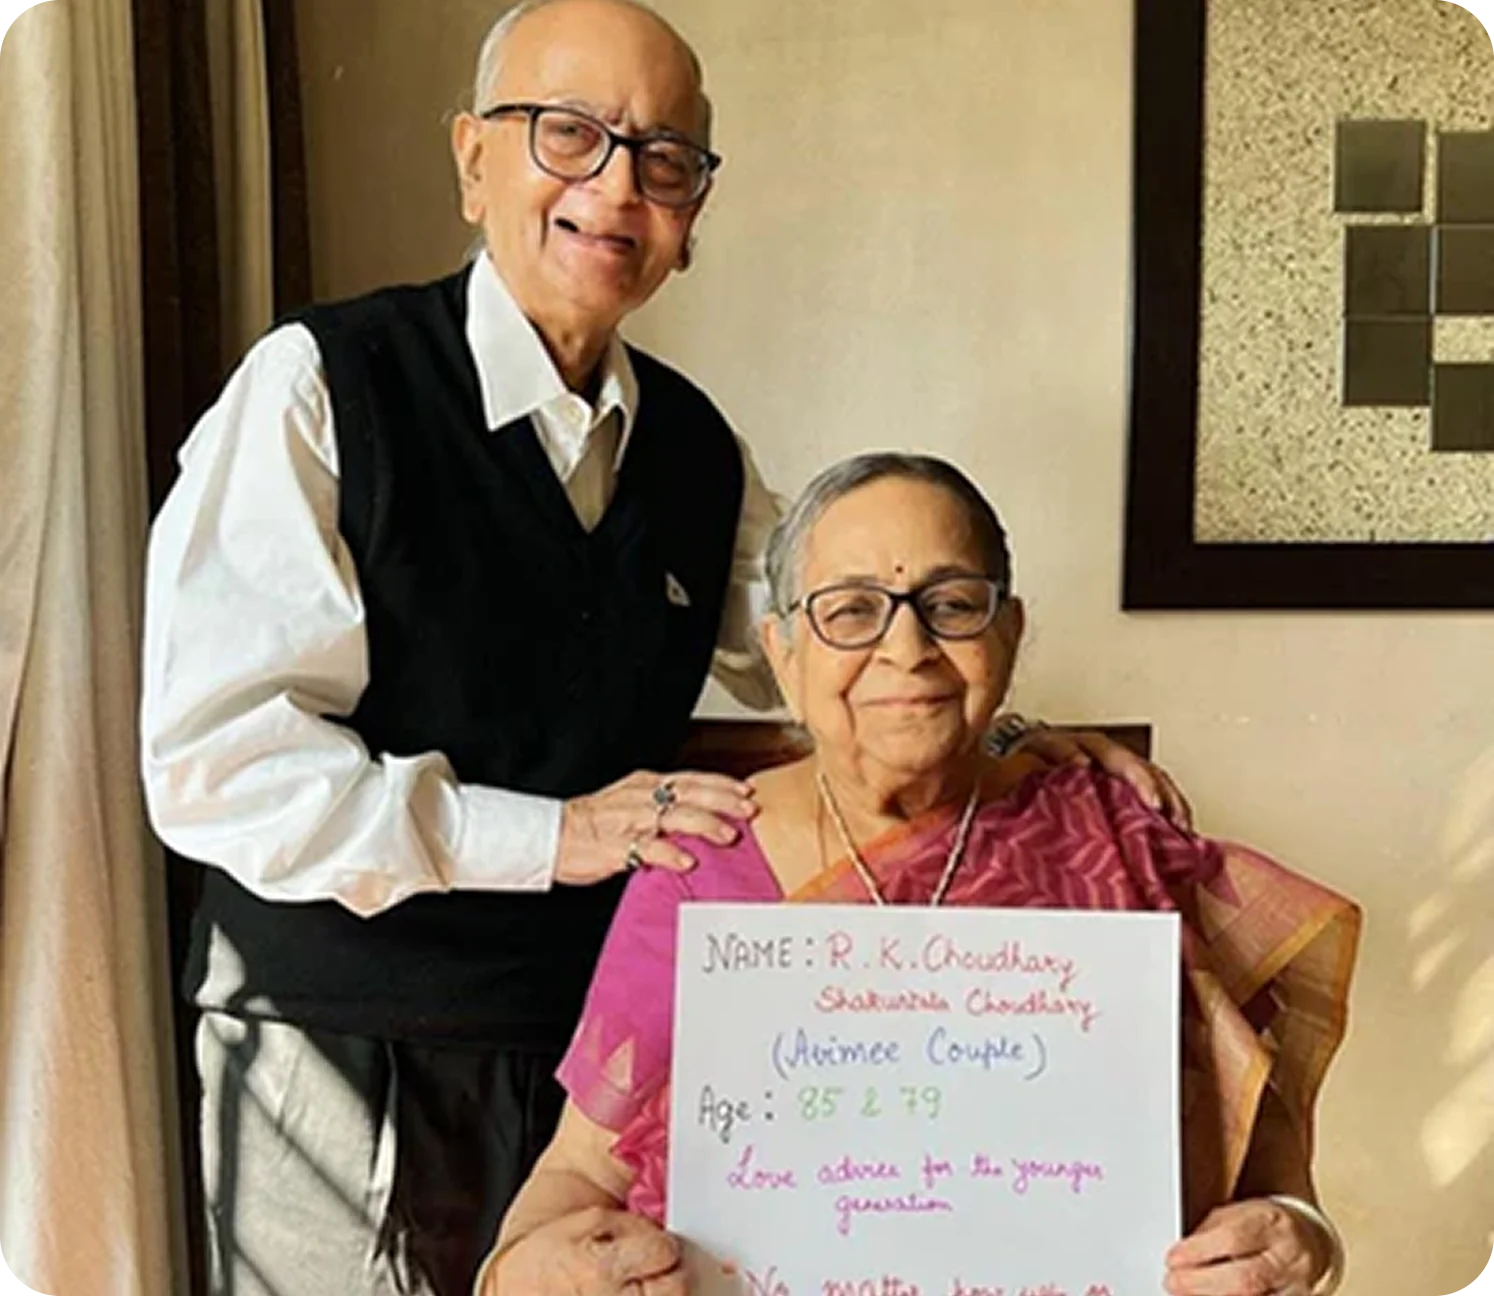 NAME: R. K. Choudhary
Shakuntala Choudhary
(Avimee Couple)
Age: 85 & 79
Love advice for the younger
generation
No matter how